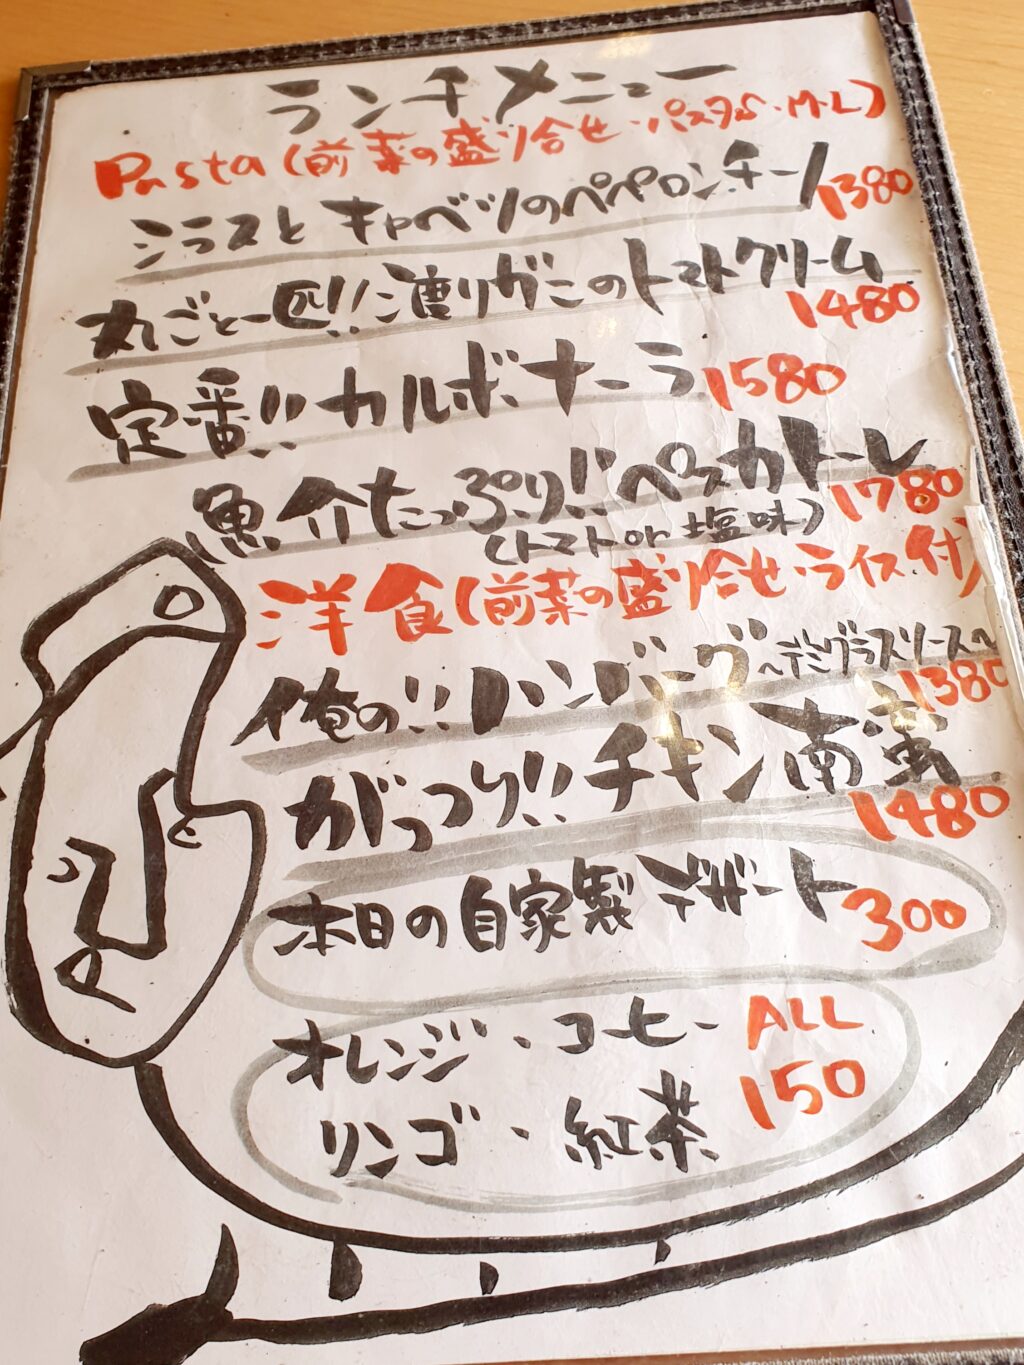 ランチメニュー
Pasta(前菜の盛り合せ・パスタS・M・L)
シラスとキャベツのペペロンチーノ 1380
丸ごと一匹!!渡りガニのトマトクリーム
1480
定番!!カルボナーラ 1580
魚介たっぷり!!ペスカトーレ
(トマトor塩味) 1780
洋食(前菜の盛り合せ・ライス付)
俺の!!ハンバーグ ~デミグラスソース~
1380
がっつり!!チキン南蛮
1480
本日の自家製デザート 300
オレンジ・コーヒー ALL
リンゴ・紅茶 150